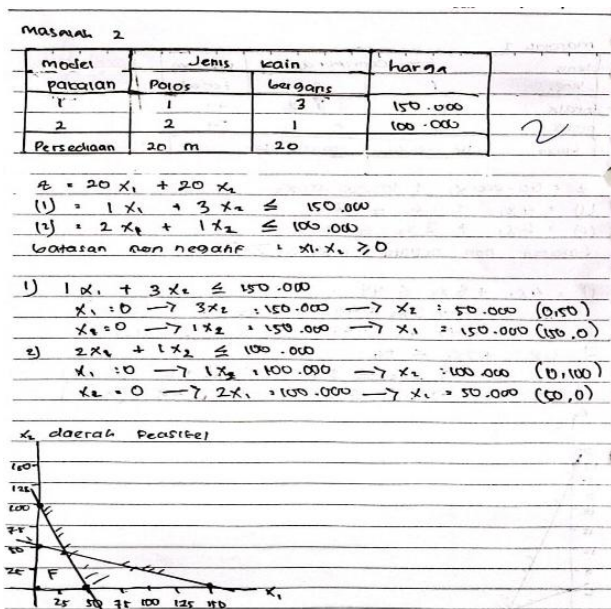 Masalah 2
model pakaian Jenis kain harga
Polos bergaris
1 1 3 150.000
2 2 1 100.000
Persediaan 20 m 20
2
z = 20 x₁ + 20 x₂
(1) = 1 x₁ + 3 x₂ ≤ 150.000
(2) = 2 x₁ + 1 x₂ ≤ 100.000
batasan non negatif : x₁. x₂ ≥ 0
1) 1 x₁ + 3 x₂ ≤ 150.000
x₁ : 0 → 3x₂ : 150.000 → x₂ : 50.000 (0,50)
x₂ = 0 → 1x₂ = 150.000 → x₁ = 150.000 (150,0)
2) 2x₁ + 1x₂ ≤ 100.000
x₁ : 0 → 1x₂ = 100.000 → x₂ : 100.000 (0,100)
x₂ = 0 → 2x₁ = 100.000 → x₁ = 50.000 (50,0)
x₂ daerah Feasibel
150
125
100
75
50
25 F
25 50 75 100 125 150 x₁